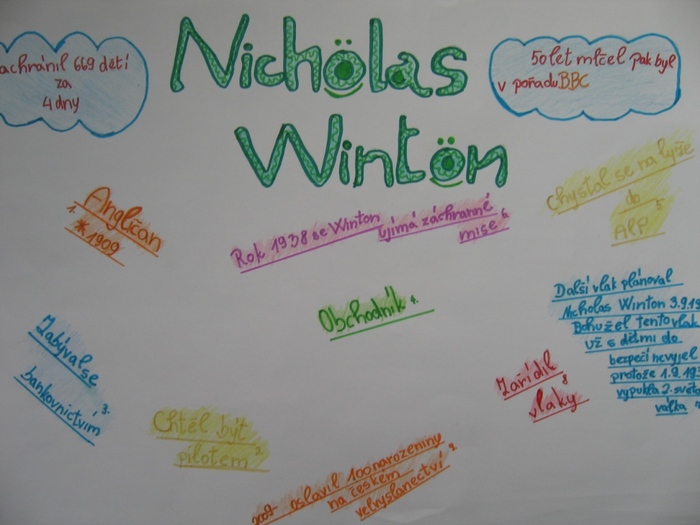 Nicholas
Winton
achránil 669 dětí
za
4 dny
50 let mlčel pak byl
v pořadu BBC
Angličan
1. * 1909
Rok 1938 se Winton
ujímá záchranné
mise 6
Chystal se na lyže
do 5
Alp
Obchodník 4.
Další vlak plánoval
Nicholas Winton 3.9.19
Bohužel tento vlak
už s dětmi do
bezpečí nevyjel
protože 1.9.19
vypukla 2. svět
válka
Zabýval se
bankovnictvím 3.
Zařídil
vlaky 8
Chtěl být
pilotem 2
2009- oslavil 100 narozeniny
na českém
velvyslanectví